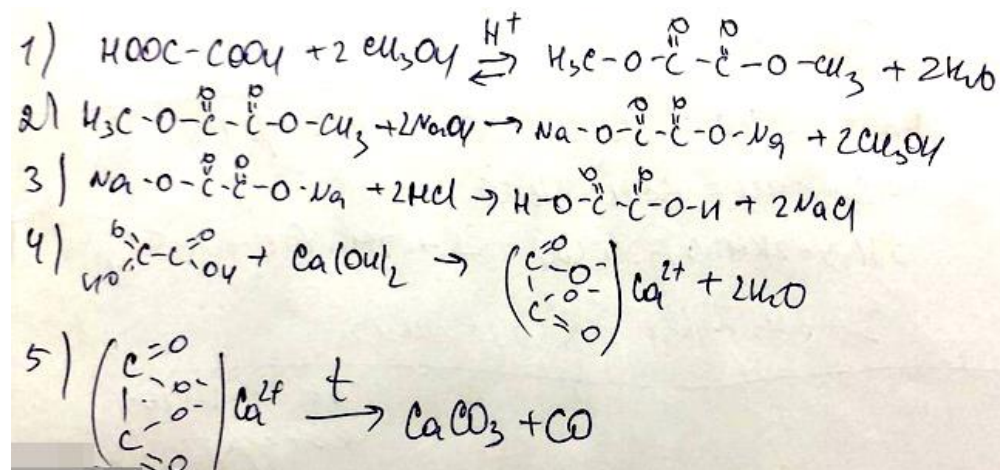 1) HOOC-COOH + 2 CH₃OH ⇌ (H⁺) H₃C-O-C(=O)-C(=O)-O-CH₃ + 2H₂O
2) H₃C-O-C(=O)-C(=O)-O-CH₃ + 2NaOH → Na-O-C(=O)-C(=O)-O-Na + 2CH₃OH
3) Na-O-C(=O)-C(=O)-O-Na + 2HCl → H-O-C(=O)-C(=O)-O-H + 2NaCl
4) HO-C(=O)-C(=O)-OH + Ca(OH)₂ → (C(=O)-O⁻ C(=O)-O⁻) Ca²⁺ + 2H₂O
5) (C(=O)-O⁻ C(=O)-O⁻) Ca²⁺ →(t) CaCO₃ + CO